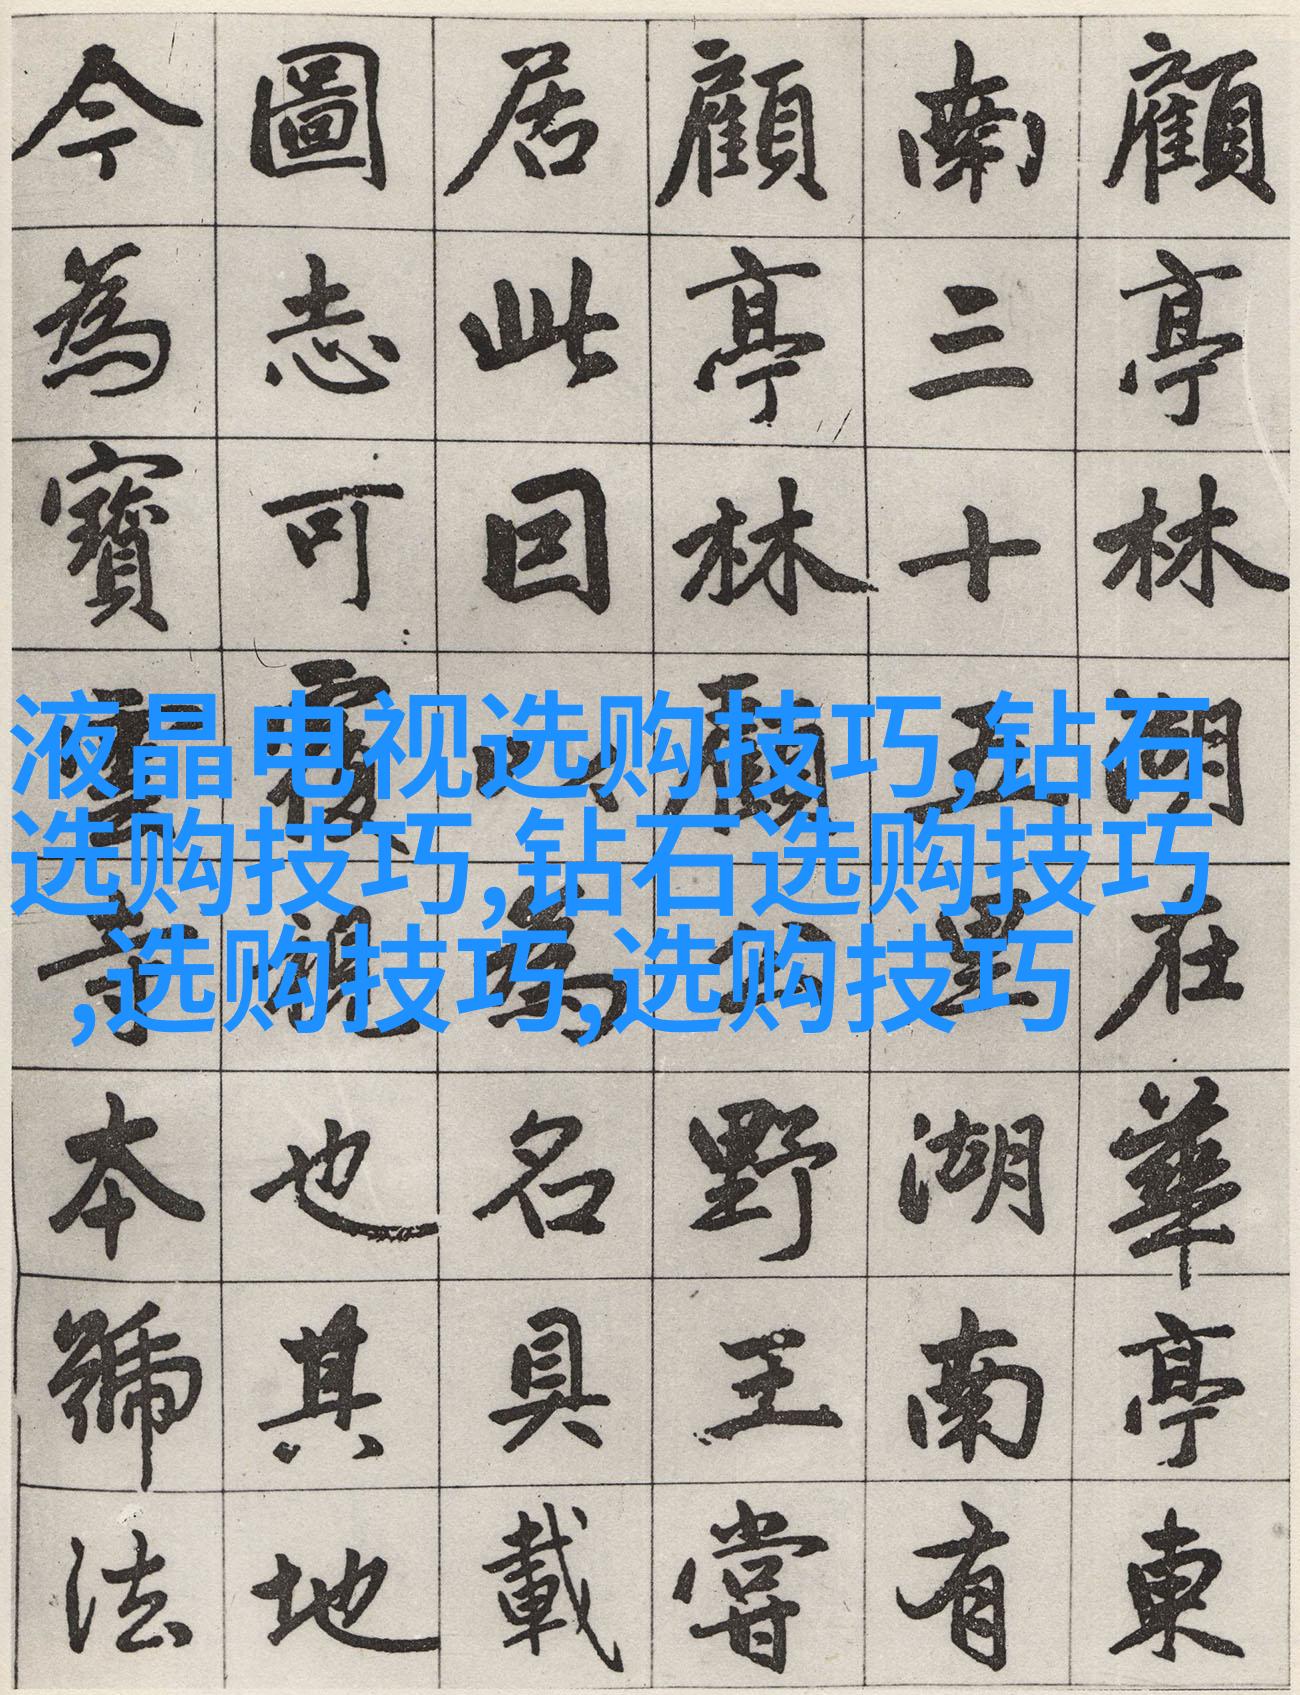 顧亭林湖在華亭東
南三十五里湖南有
顧亭林顧公野王嘗
居此因以為名具載
圖志可覆視也其地
今為寶雲寺本號法
液晶电视选购技巧,钻石
选购技巧,钻石选购技巧
,选购技巧,选购技巧